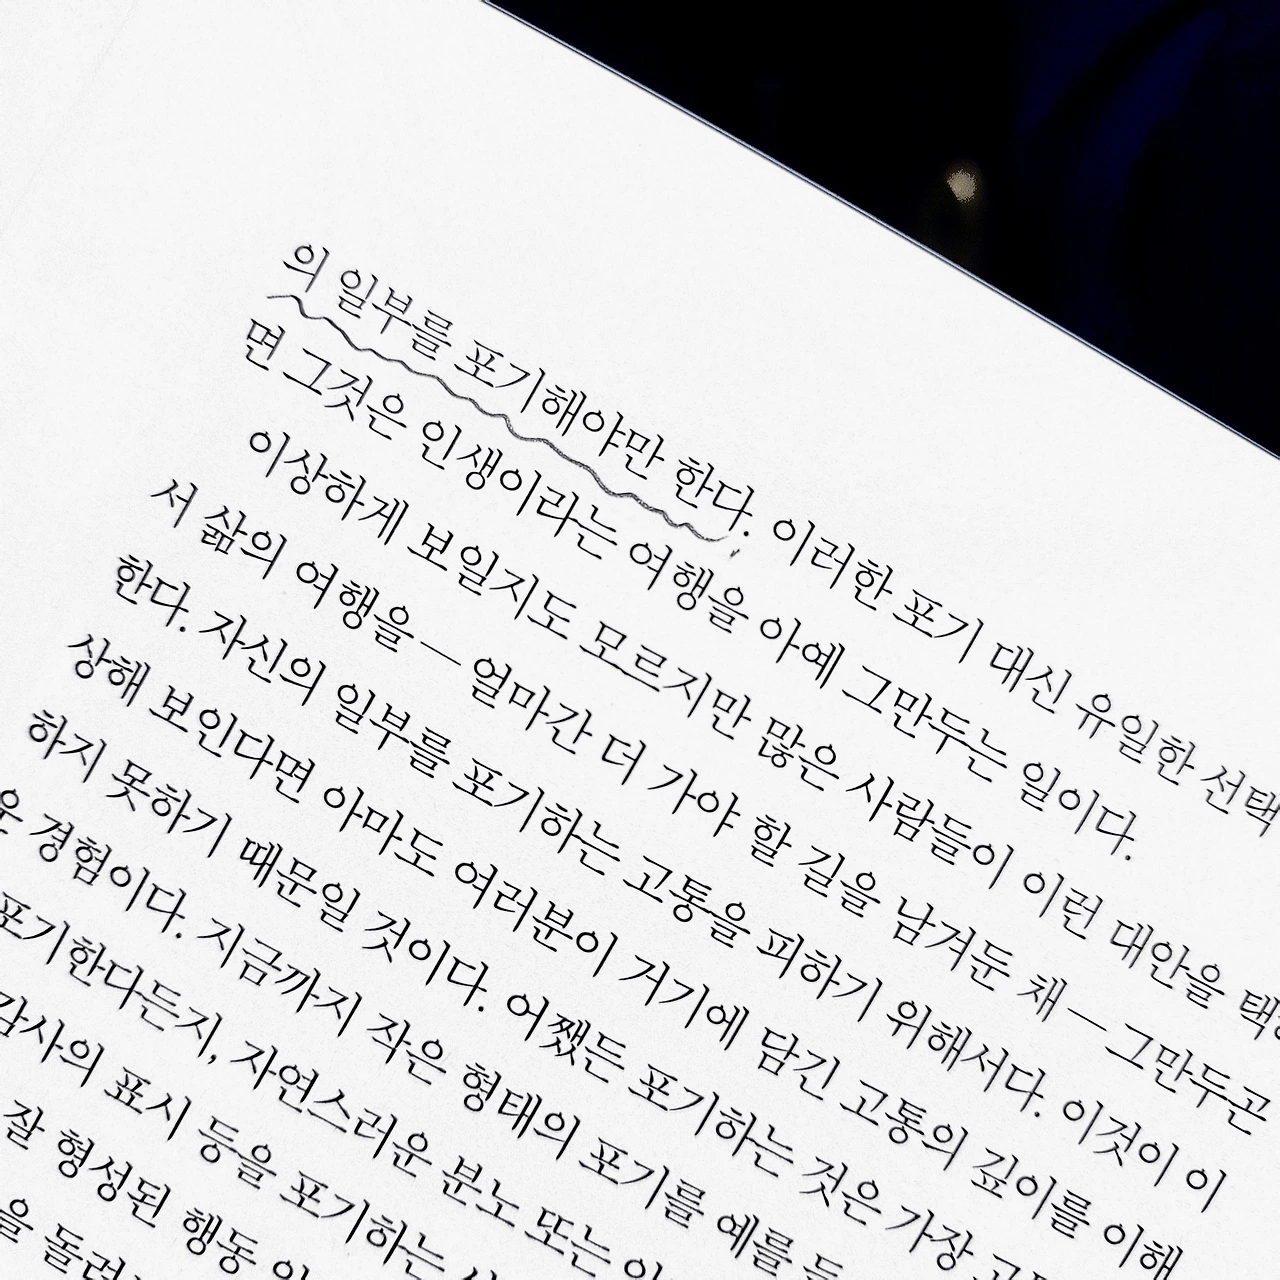 의 일부를 포기해야만 한다. 이러한 포기 대신 유일한 선택
면 그것은 인생이라는 여행을 아예 그만두는 일이다.
이상하게 보일지도 모르지만 많은 사람들이 이런 대안을 택
서 삶의 여행을 — 얼마간 더 가야 할 길을 남겨둔 채 — 그만두곤
한다. 자신의 일부를 포기하는 고통을 피하기 위해서다. 이것이 이
상해 보인다면 아마도 여러분이 거기에 담긴 고통의 깊이를 이해
하지 못하기 때문일 것이다. 어쨌든 포기하는 것은 가장
운 경험이다. 지금까지 작은 형태의 포기를 예를
포기한다든지, 자연스러운 분노 또는
감사의 표시 등을 포기하는
잘 형성된 행동
을 돌려